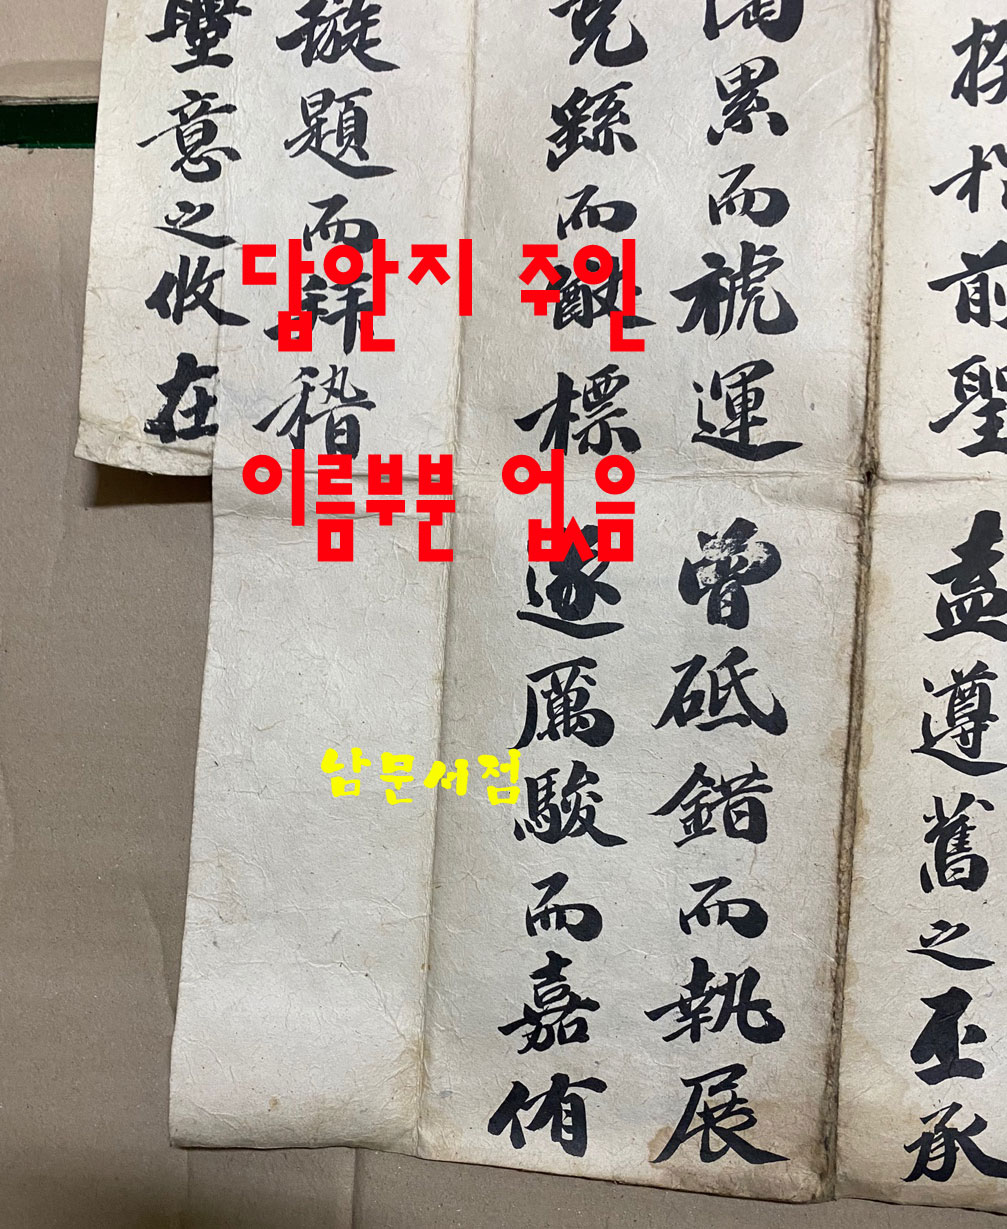 前聖
盍遵舊之丕承
累而禠運
曾砥錯而執展
而
標
逐厲駿而嘉侑
題而拜稽
意之攸在
답안지 주인
이름부분 없음
남문서점